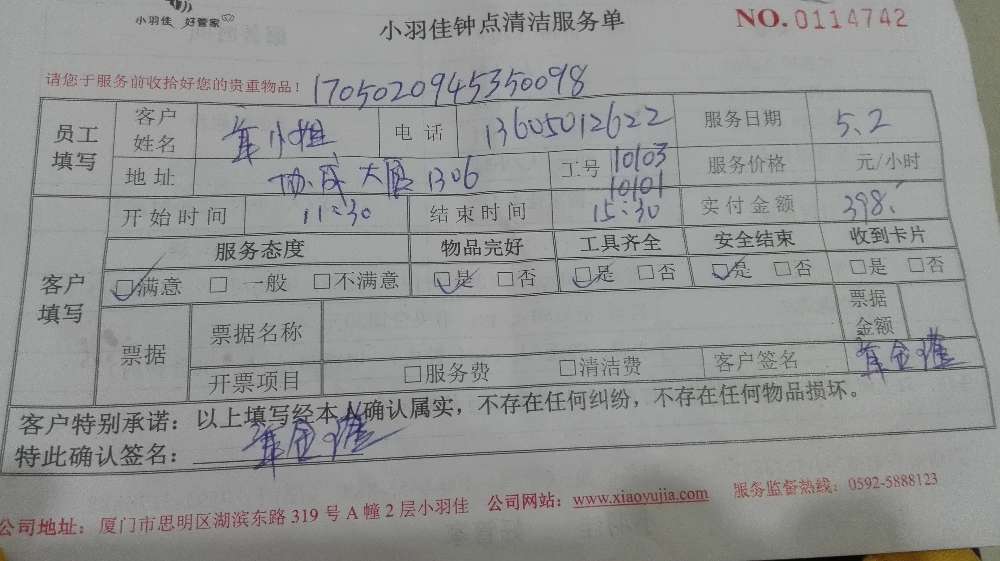 小羽佳 好管家
小羽佳钟点清洁服务单
NO.0114742
请您于服务前收拾好您的贵重物品! 1705020945350098
员工填写 客户姓名 小姐 电话 13605012622 服务日期 5.2
地址 协成大厦1306 工号 10103 10101 服务价格 元/小时
客户填写 开始时间 11:30 结束时间 15:30 实付金额 398.
服务态度 物品完好 工具齐全 安全结束 收到卡片
☑满意 □一般 □不满意 ☑是 □否 ☑是 □否 ☑是 □否 □是 □否
票据 票据名称 票据金额
开票项目 □服务费 □清洁费 客户签名
客户特别承诺：以上填写经本人确认属实，不存在任何纠纷，不存在任何物品损坏。
特此确认签名：
公司地址：厦门市思明区湖滨东路319号A幢2层小羽佳 公司网站：www.xiaoyujia.com 服务监督热线：0592-5888123